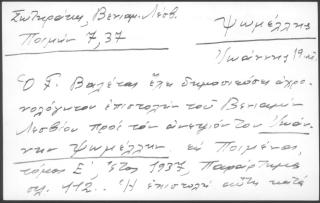 Σωκράτης, Βενιαμ. Λέσβ.
Ποιμήν 7,37
Ψωμέλλης
Ἰωάννης
Ὁ Γ. Βαλέτας ἔχει δημοσιεύσει ἀχρο-
νολόγητον ἐπιστολὴν τοῦ Βενιαμὶν
Λεσβίου πρὸς τὸν ἀνεψιόν του Ἰωάν-
νην Ψωμέλλην ἐν Ποιμένος,
τόμος Ε΄, ἔτος 1937, Παράρτημα
σλ. 112. Ἡ ἐπιστολὴ αὕτη κατὰ